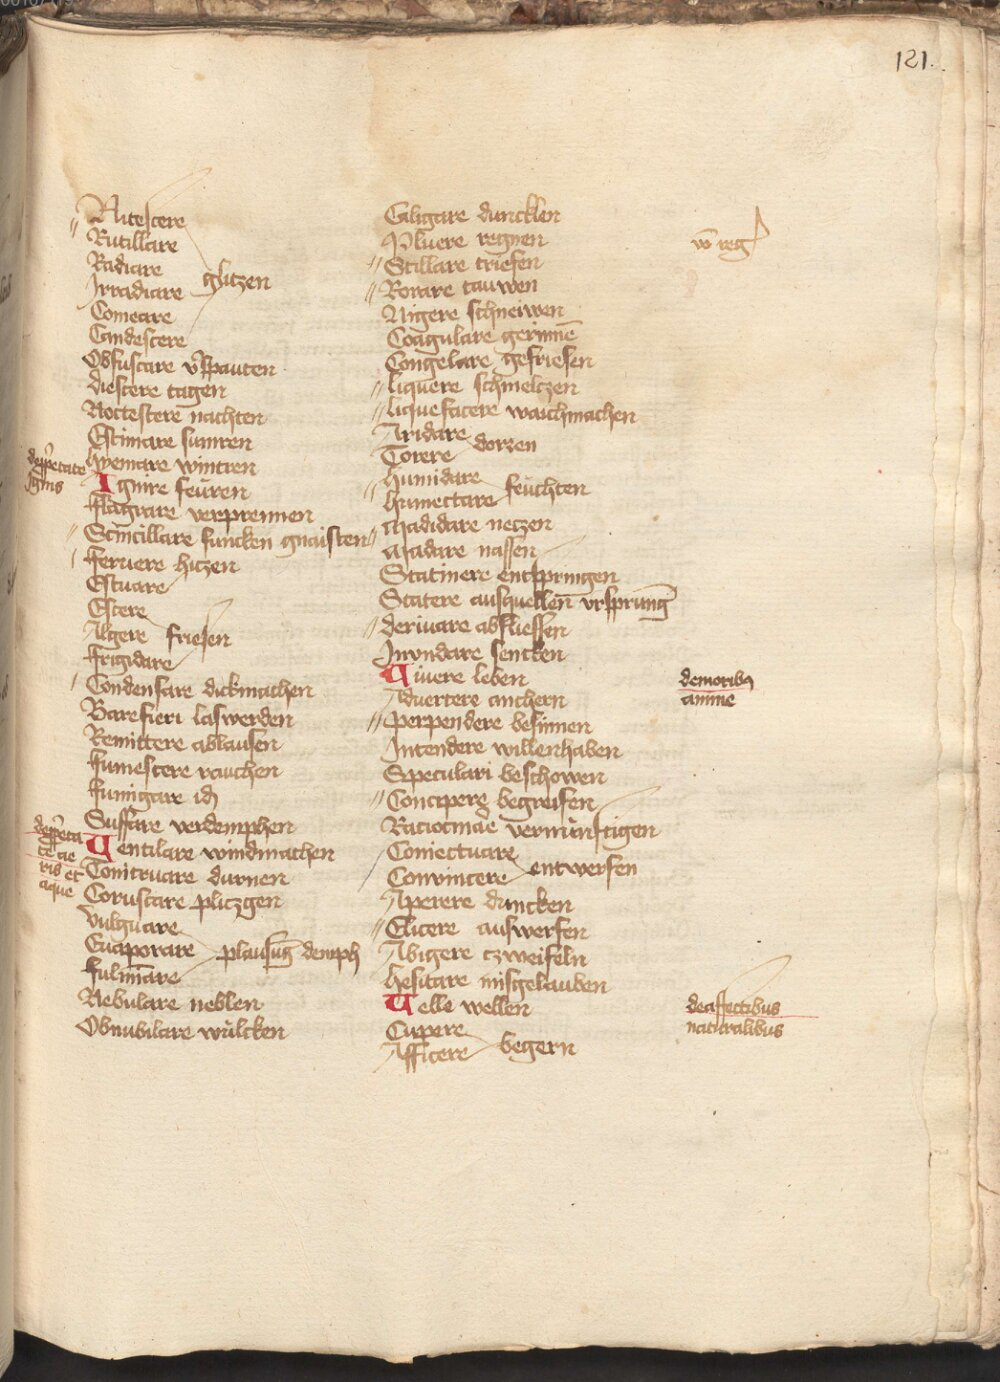 121.
Nitescere
Rutillare
Radicare
Irradicare glitzen
Comeare
Candescere
Obfuscare v̄spauten
diescere tagen
Noctescere nachten
Estimare sumren
hyemare wintren
Ignire feuren
flagrare verprennen
Scincillare funcken gnaisten
feruere hitzen
Estuare
Estere
Algere friesen
frigidare
Condensare dickmachen
Rarefieri laswerden
Remittere ablausen
fumescere rauchen
fumigare id
Suffcare verdemphen
Uentilare windmachen
Tonitruare durnen
Coruscare pliczgen
vulguare
Euaporare plausung demph
fulminare
Nebulare neblen
Obnubilare wulcken
depprietate
ignis
depprieta
te ae
ris et
aque
Caligare duncklen
Pluere regnen
Stillare triefen
Rorare tauwen
Nigere schneiwen
Coagulare gerinnē
Congelare gefriesen
liquere schmelczen
liquefacere waichmachen
Aridare dorzen
Torere
humidare feuchten
humectare
Madidare neczen
Madare nassen
Statinere entspringen
Statere ausquellen vrsprung
deriuare abfliessen
Inundare sencken
Uiuere leben
Aduertere anchern
perpendere besinnen
Intendere willenhaben
Speculari beschowen
Concipere begreifen
Raciocinäe vernünftigen
Coniectuare
Conuincere entwerfen
Aperere duncken
Elicere auswerfen
Abigere czweifeln
hesitare misgelauben
Uelle wellen
Cupere
Afficere begern
vō reg
demotibus
anime
deaffectibus
naturalibus